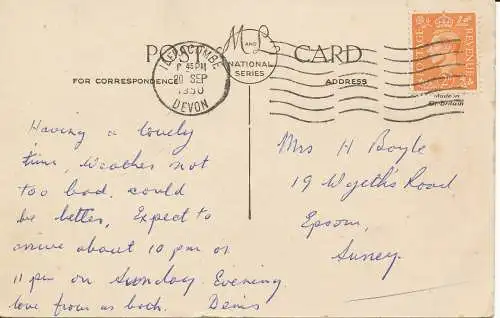 POST CARD
M AND S NATIONAL SERIES
FOR CORRESPONDENCE
ADDRESS
ILFRACOMBE
45 PM
20 SEP
1950
DEVON
POSTAGE REVENUE
Made in
Gt. Britain
Having a lovely
time, Weather not
too bad. could
be better, Expect to
arrive about 10 pm or
11 pm on Sunday Evening
love from us both. Denis
Mrs H Boyle
19 Road
Epsom,
Surrey.